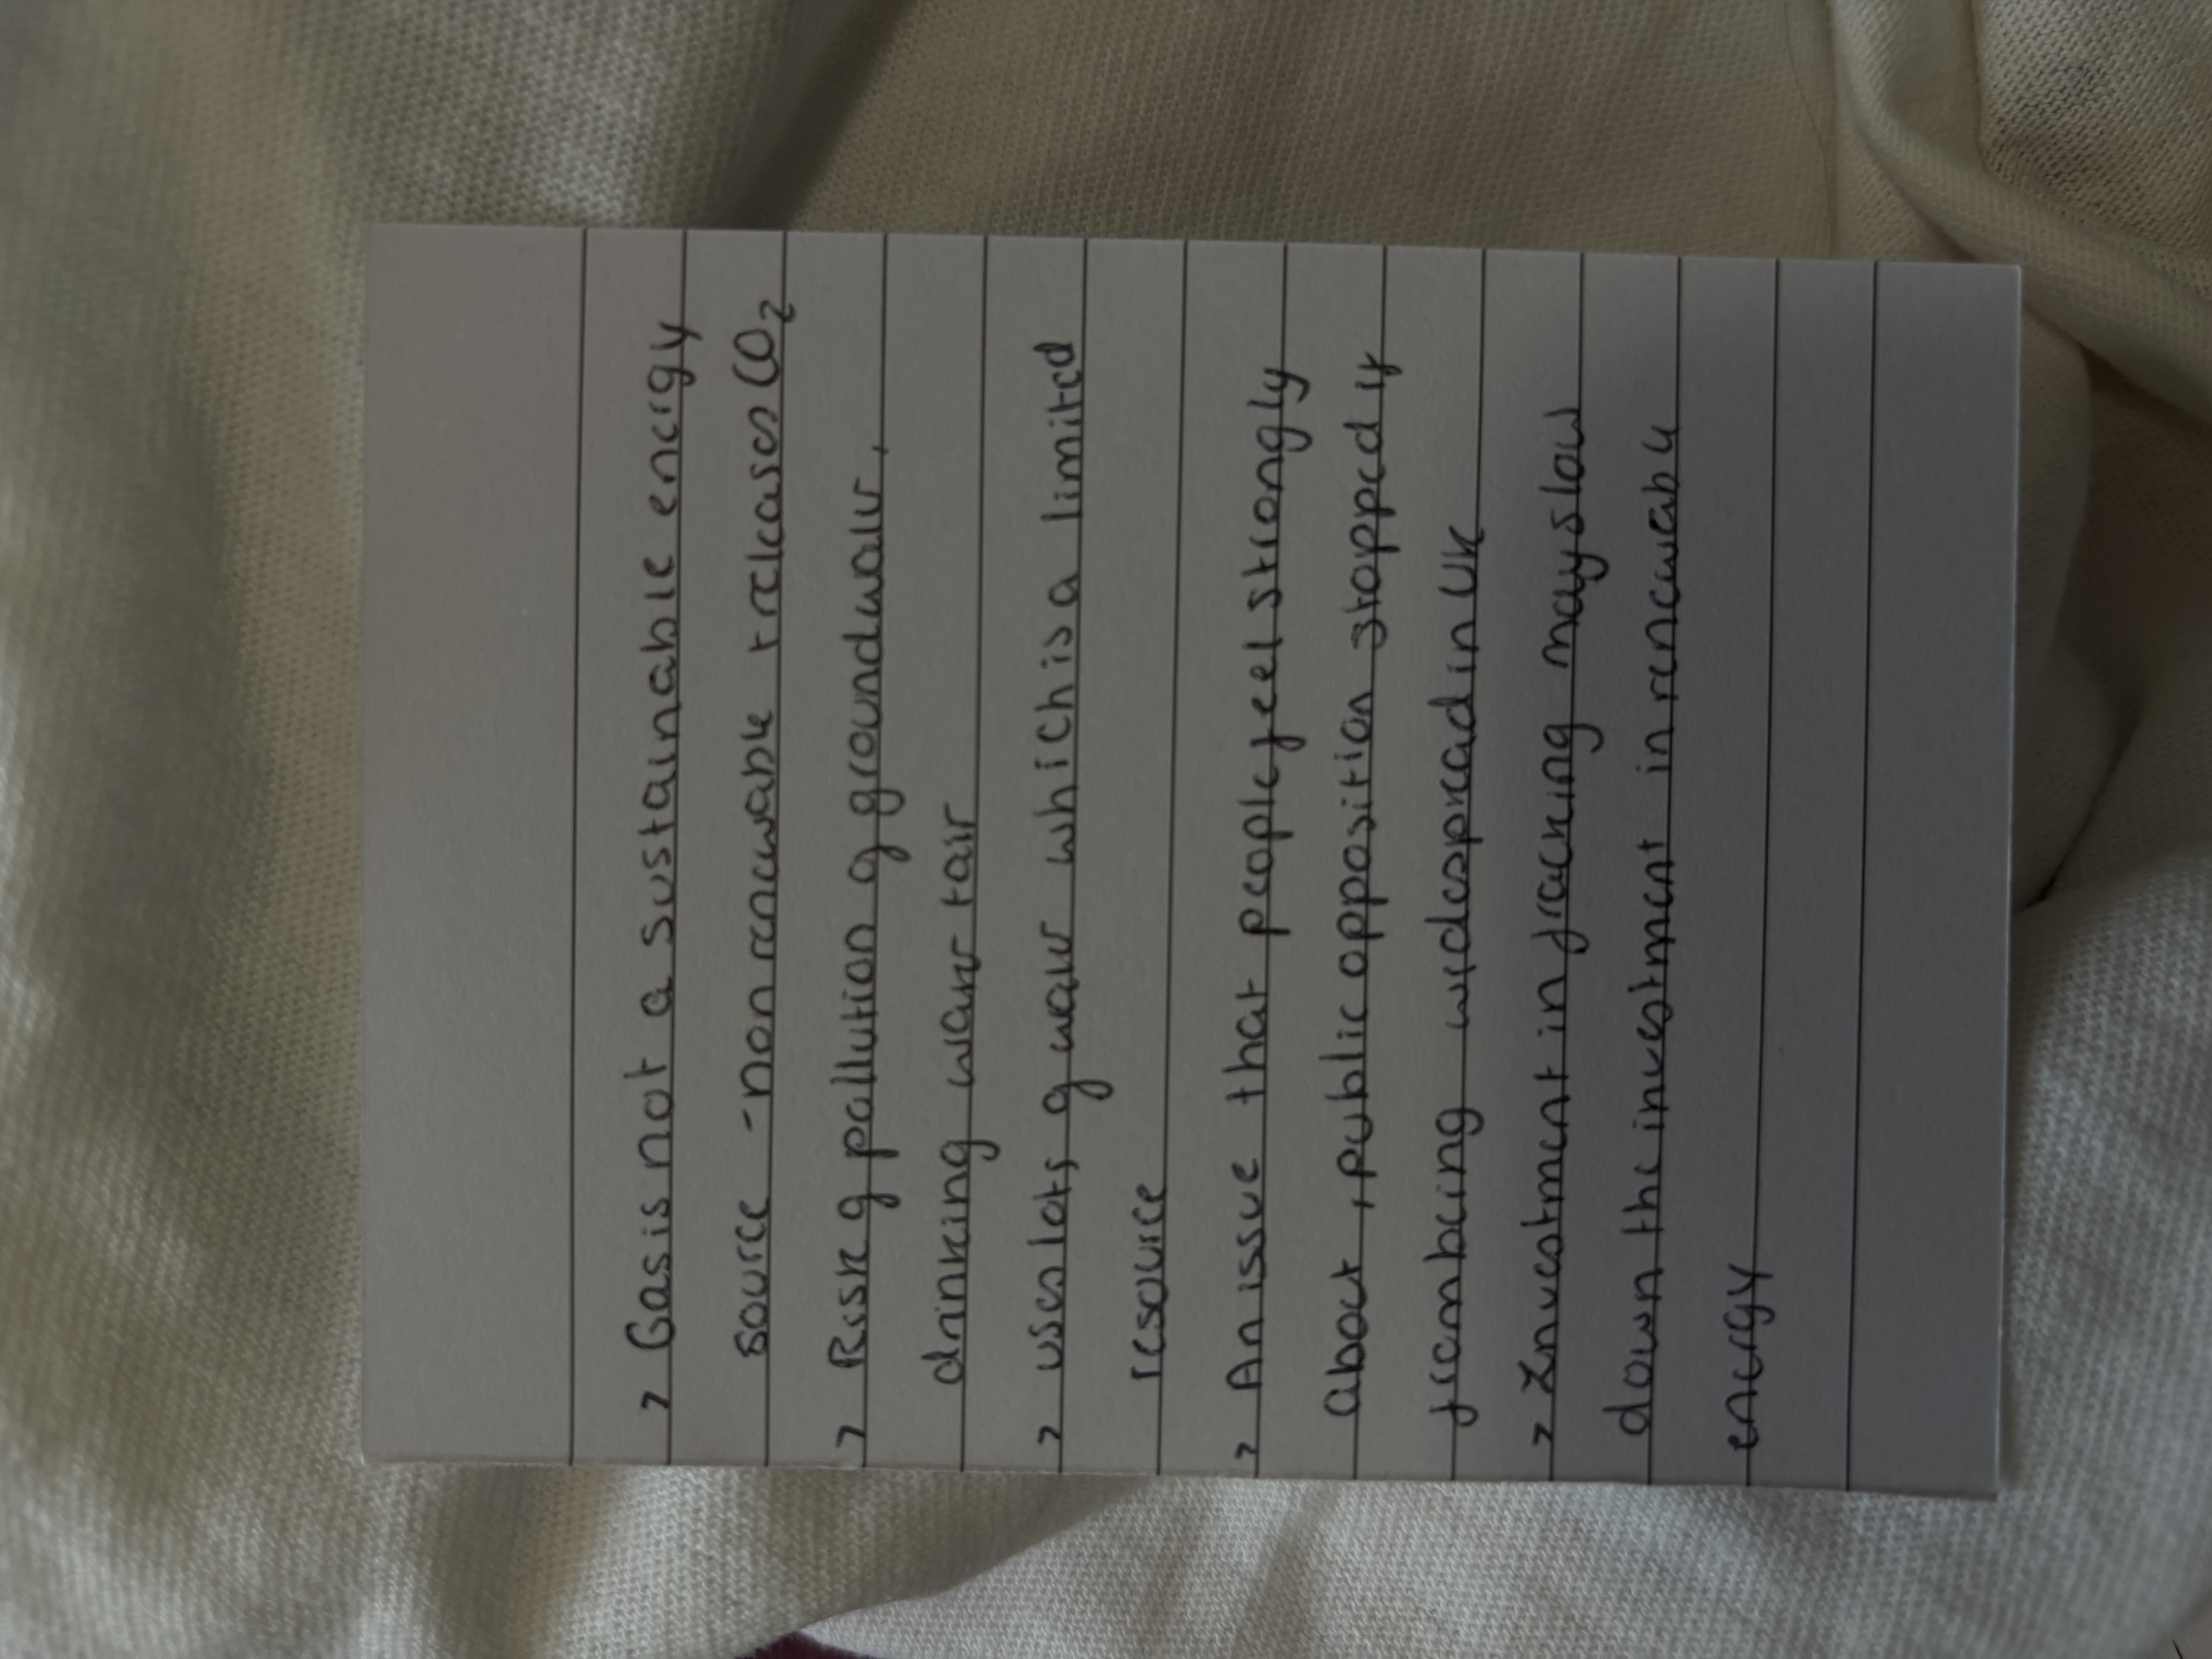 > Gas is not a sustainable energy
source - non renewable + releases CO₂
> Risk of pollution of groundwater,
drinking water + air
> uses lots of water which is a limited
resource
> An issue that people feel strongly
about, public opposition stopped it
from being widespread in UK
> Investment in fracking may slow
down the investment in renewable
energy